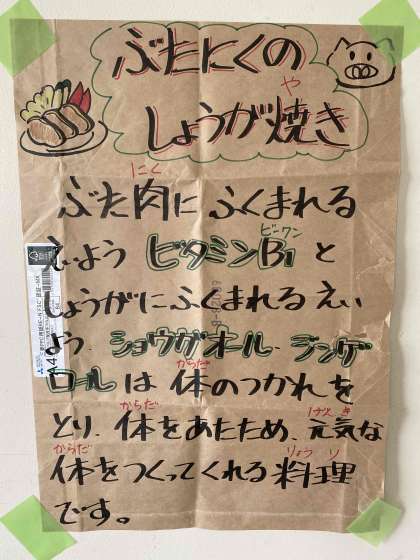 ぶたにくの
や
しょうが焼き
にく
ぶた肉にふくまれる
ビーワン
えいよう ビタミンB1と
しょうがにふくまれるえい
よう、ショウガオール・ジンゲ
からだ
ロールは体のつかれを
からだ げんき
とり、体をあたため、元気な
からだ りょうり
体をつくってくれる料理
です。
A4